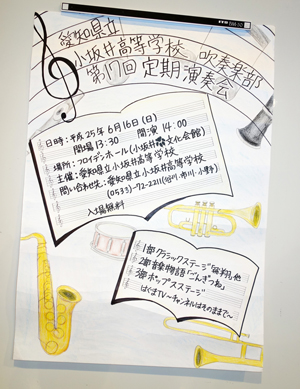 愛知県立
小坂井高等学校 吹奏楽部
第17回 定期演奏会
日時：平成25年6月16日(日)
開場13:30 開演14:00
場所：フロイデンホール(小坂井文化会館)
主催：愛知県立小坂井高等学校
問い合わせ先：愛知県立小坂井高等学校
(0533)-72-2211
入場無料
1部 クラシックステージ
2部 音楽物語「ごんぎつね」
3部 ポップスステージ
はくまTV〜チャンネルはそのままで〜